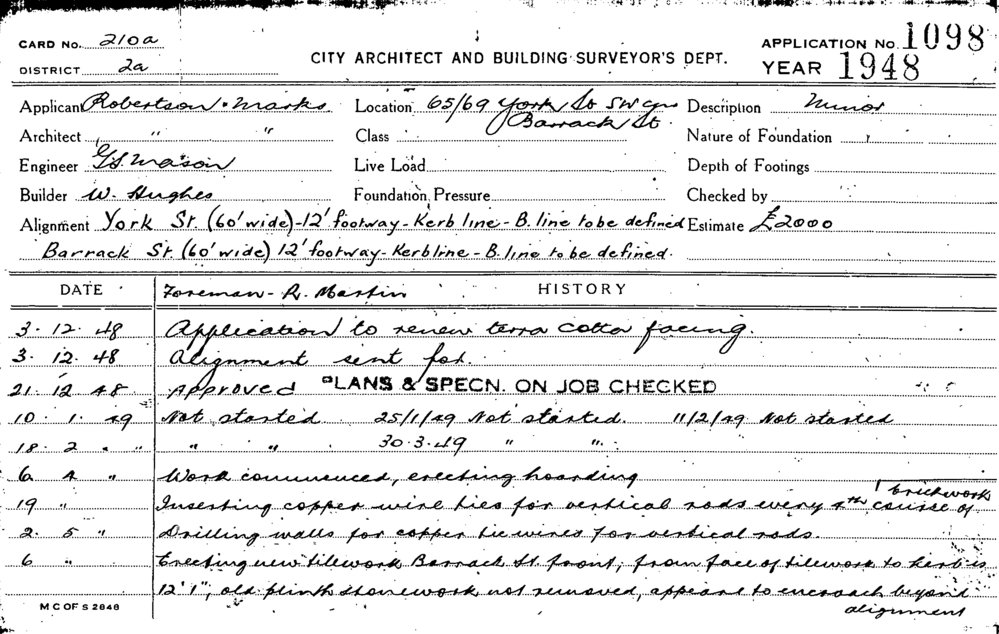 CARD No. 210a
DISTRICT 2a
CITY ARCHITECT AND BUILDING SURVEYOR'S DEPT.
APPLICATION No. 1098
YEAR 1948
Applicant Robertson & Marks
Location 65/69 York St SW cnr
Barrack St.
Description Minor
Architect " "
Class
Nature of Foundation
Engineer G.S. Mason
Live Load
Depth of Footings
Builder W. Hughes
Foundation Pressure
Checked by
Alignment York St. (60' wide)-12' footway-Kerb line-B. line to be defined
Estimate £2000
Barrack St. (60' wide) 12' footway-Kerb line-B. line to be defined.
DATE Foreman - R. Martin HISTORY
3. 12. 48 Application to renew terra cotta facing.
3. 12. 48 Alignment sent for.
21. 12 48 Approved PLANS & SPECN. ON JOB CHECKED
10. 1. 49 Not started 25/1/49 Not started. 11/2/49 Not started
18. 2 " " " " 30.3.49 " "
6 4 " Work commenced, erecting hoarding
19 " Inserting copper wire ties for vertical rods every 4th course of brickwork
2. 5 " Drilling walls for copper tie wires for vertical rods.
6 " Erecting new tilework Barrack St. front, from face of tilework to kerb is
12'1", old plinth stonework not removed, appears to encroach beyond
alignment
M C OF S 2848